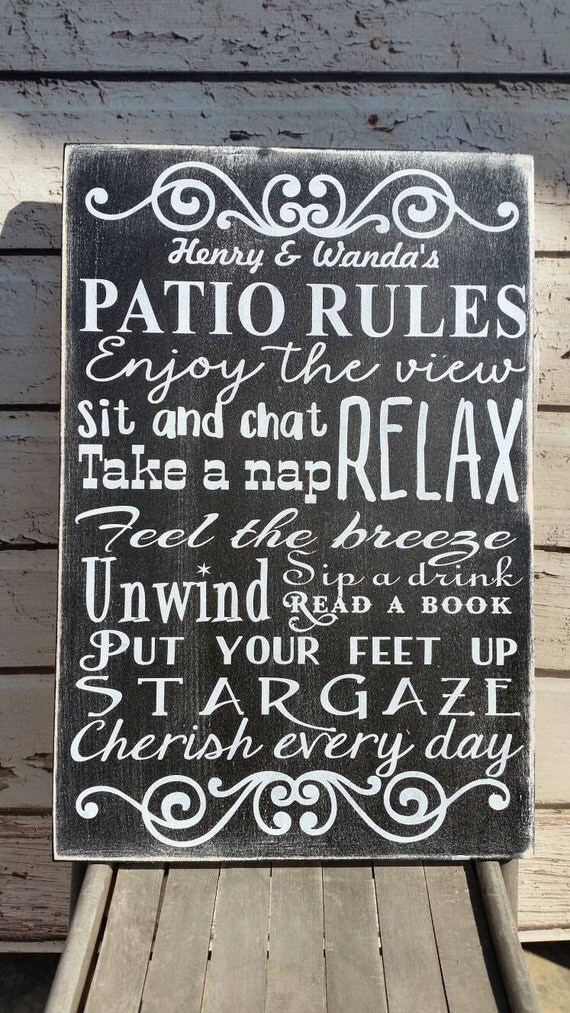 Henry & Wanda's
PATIO RULES
Enjoy the view
Sit and chat
Take a nap
RELAX
Feel the breeze
Unwind
Sip a drink
READ A BOOK
PUT YOUR FEET UP
STARGAZE
Cherish every day